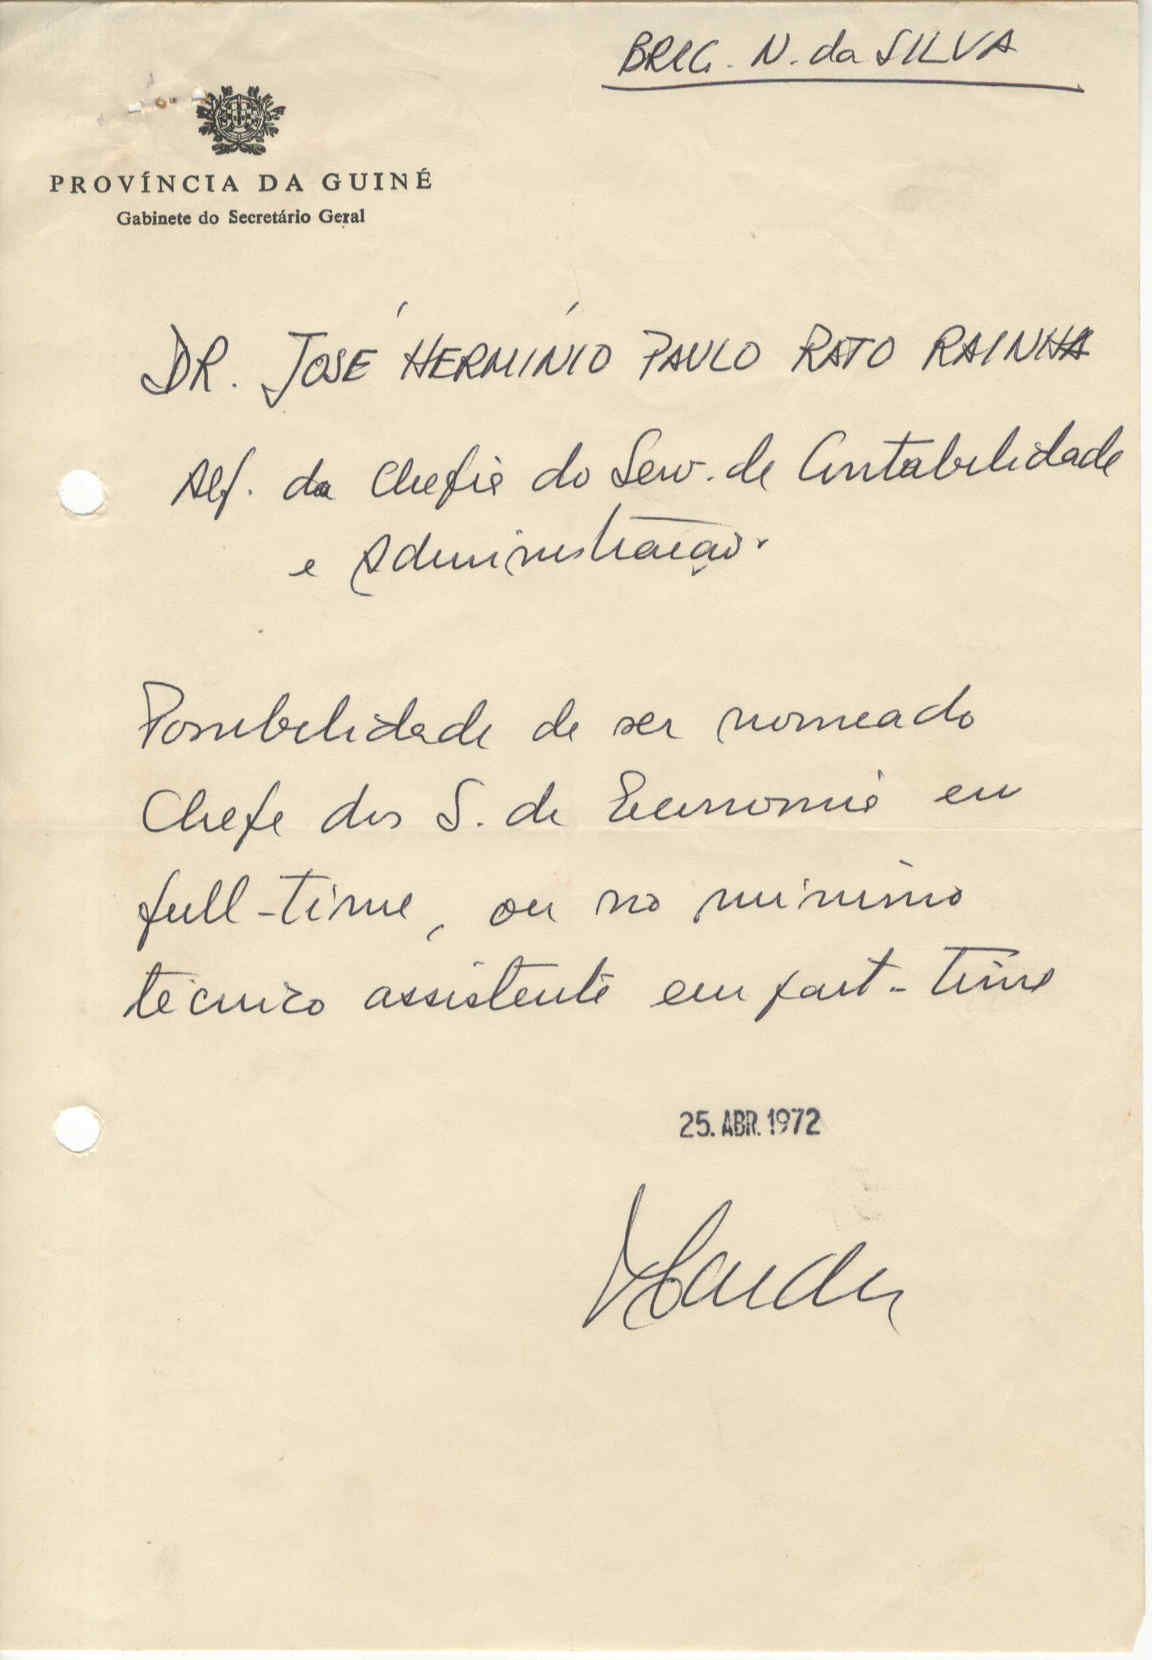 BRIG. N. da SILVA
PROVÍNCIA DA GUINÉ
Gabinete do Secretário Geral
DR. JOSÉ HERMÍNIO PAULO RATO RAINHA
Alf. da Chefia do Serv. de Contabilidade
e Administração.
Possibilidade de ser nomeado
Chefe dos S. de Economia em
full-time, ou no mínimo
técnico assistente em part-time
25. ABR. 1972